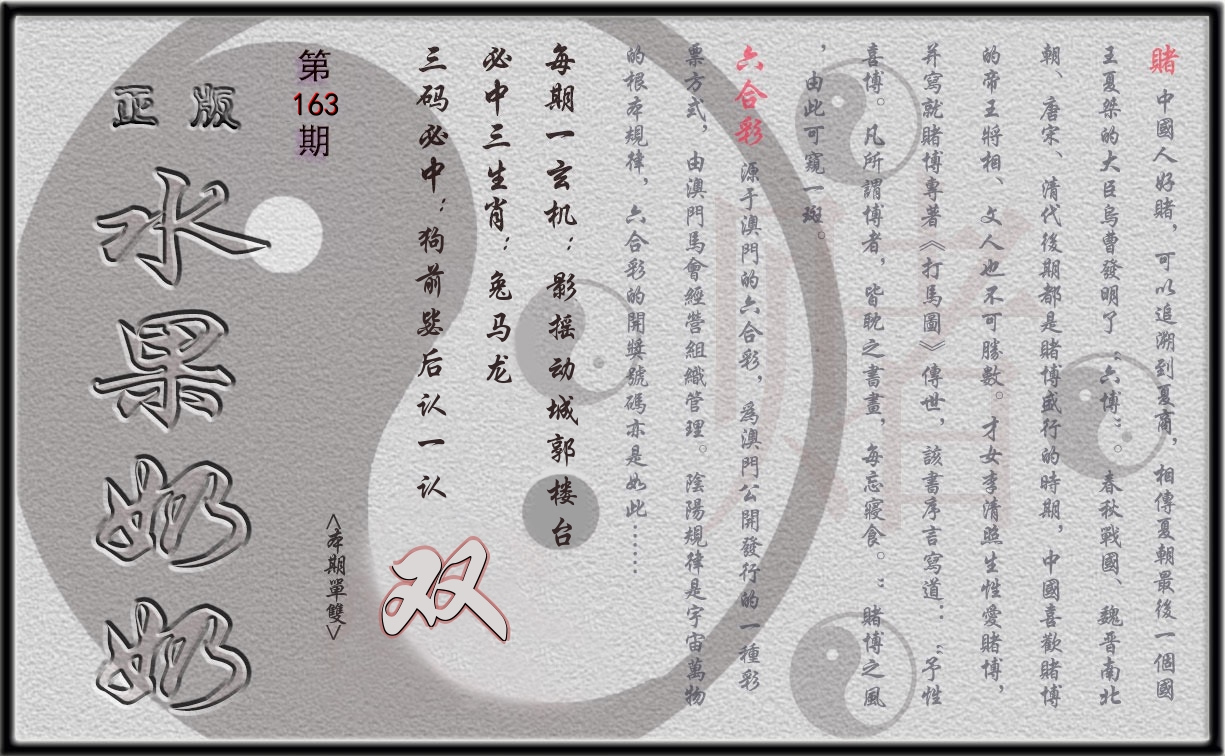 賭 中國人好賭，可以追溯到夏商，相傳夏朝最後一個國
王夏桀的大臣烏曹發明了“六博”。春秋戰國、魏晋南北
朝、唐宋、清代後期都是賭博盛行的時期，中國喜歡賭博
的帝王將相、文人也不可勝數。才女李清照生性愛賭博，
并寫就賭博專著《打馬圖》傳世，該書序言寫道：“予性
喜博。凡所謂博者，皆耽之書畫，每忘寢食。：賭博之風
，由此可窺一斑。
六合彩 源于澳門的六合彩，為澳門公開發行的一種彩
票方式，由澳門馬會經營組織管理。陰陽規律是宇宙萬物
的根本規律，六合彩的開獎號碼亦是如此……
每期一玄机：影摇动城郭楼台
必中三生肖：兔马龙
三码必中：狗前 后认一认
双
<本期單雙>
第163期
正版
水果奶奶
賭